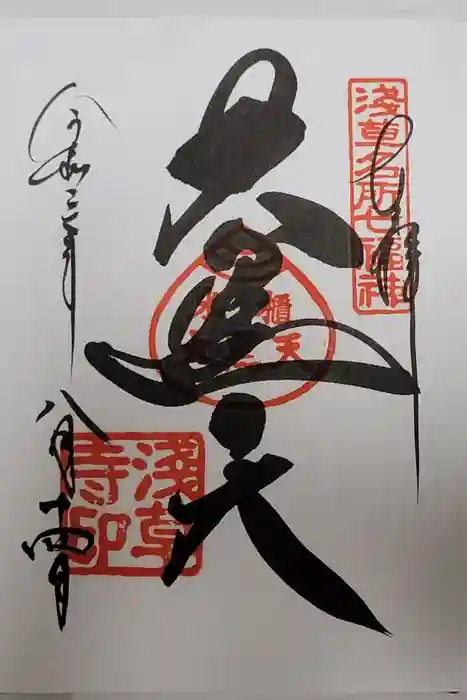 浅草名所七福神
奉拝
大黒天
浅草寺印
令和二年
八月十四日